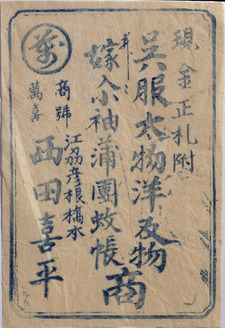 現金正札附
呉服太物洋反物
并ニ
嫁入小袖蒲團蚊帳
商
江刕彦根橋本
商號
西田喜平
萬喜